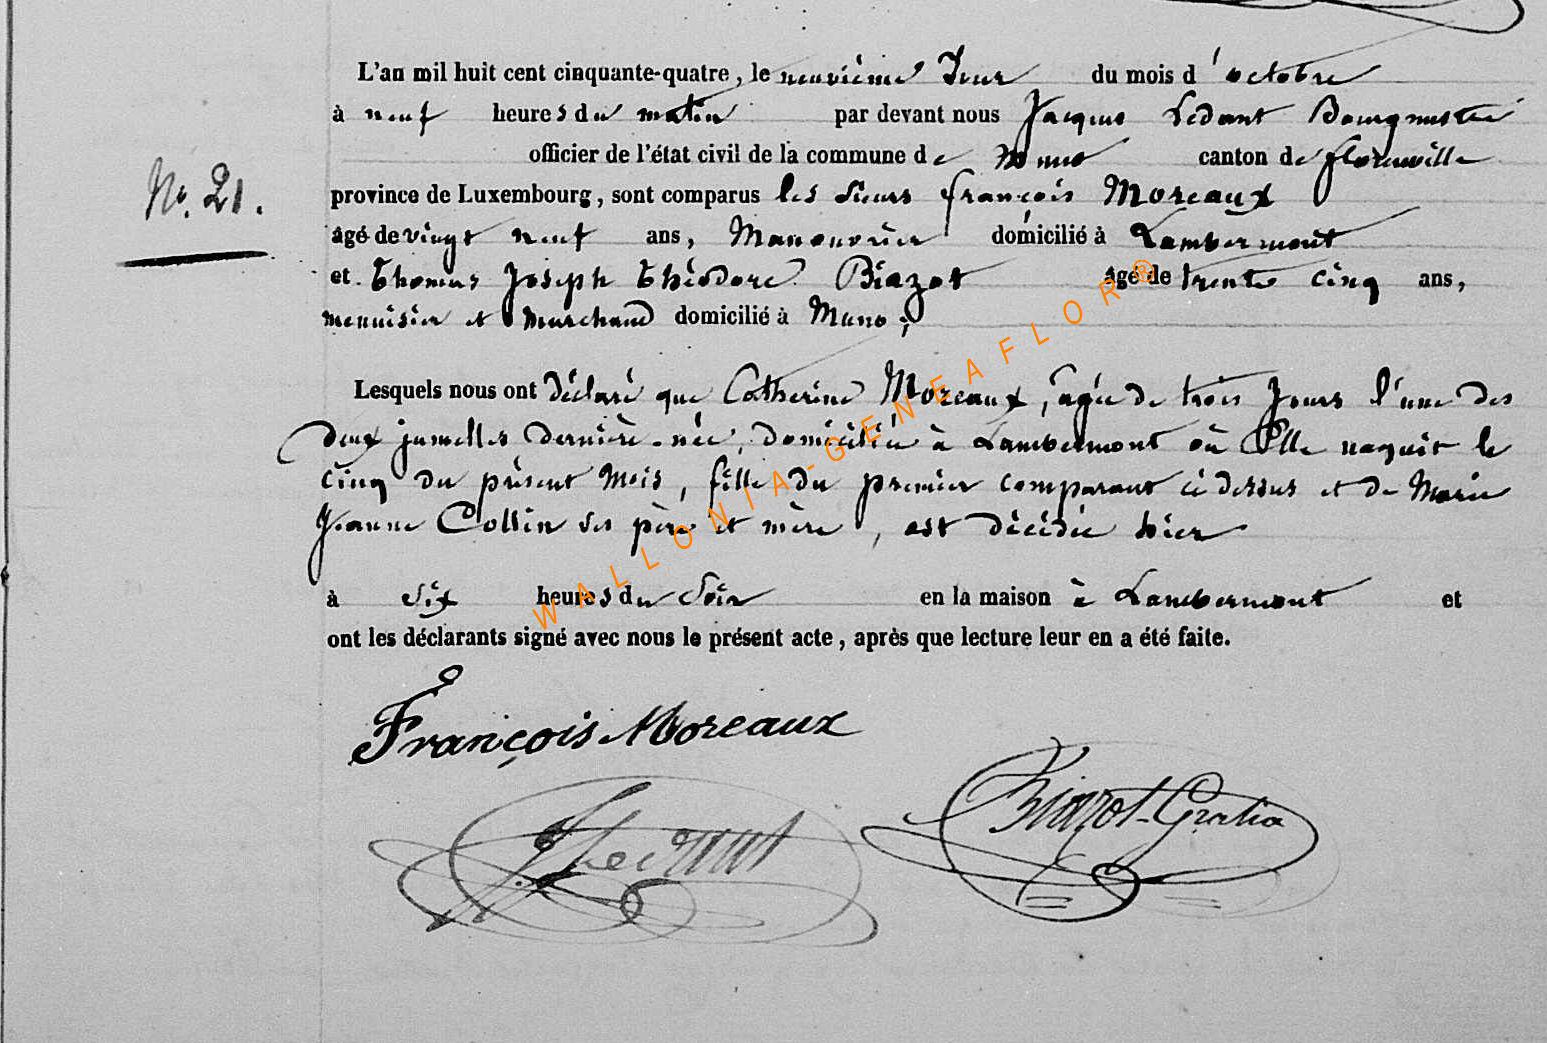 L'an mil huit cent cinquante-quatre, le neuvième Jour du mois d'octobre
à neuf heures du matin par devant nous Jacques Ledant Bourgmestre
officier de l'état civil de la commune de Muno canton de florenville
No. 21.
province de Luxembourg, sont comparus les sieurs françois Moreaux
âgé de vingt neuf ans, Manouvrier domicilié à Lambermont
et Thomas Joseph Théodore Biazot âgé de trente cinq ans,
menuisier et Marchand domicilié à Muno;
Lesquels nous ont déclaré que Catherine Moreaux, agée de trois Jours l'une des
deux jumelles dernière-née, domiciliée à Lambermont où Elle naquit le
cinq du présent Mois, fille du premier comparant ci dessus et de Marie
Jeanne Collin ses père et mère, est décédée hier
à six heures du Soir en la maison à Lambermont et
ont les déclarants signé avec nous le présent acte, après que lecture leur en a été faite.
François Moreaux
J Ledant
Biazot-Gratia
WALLONIA-GENEAFLOR®